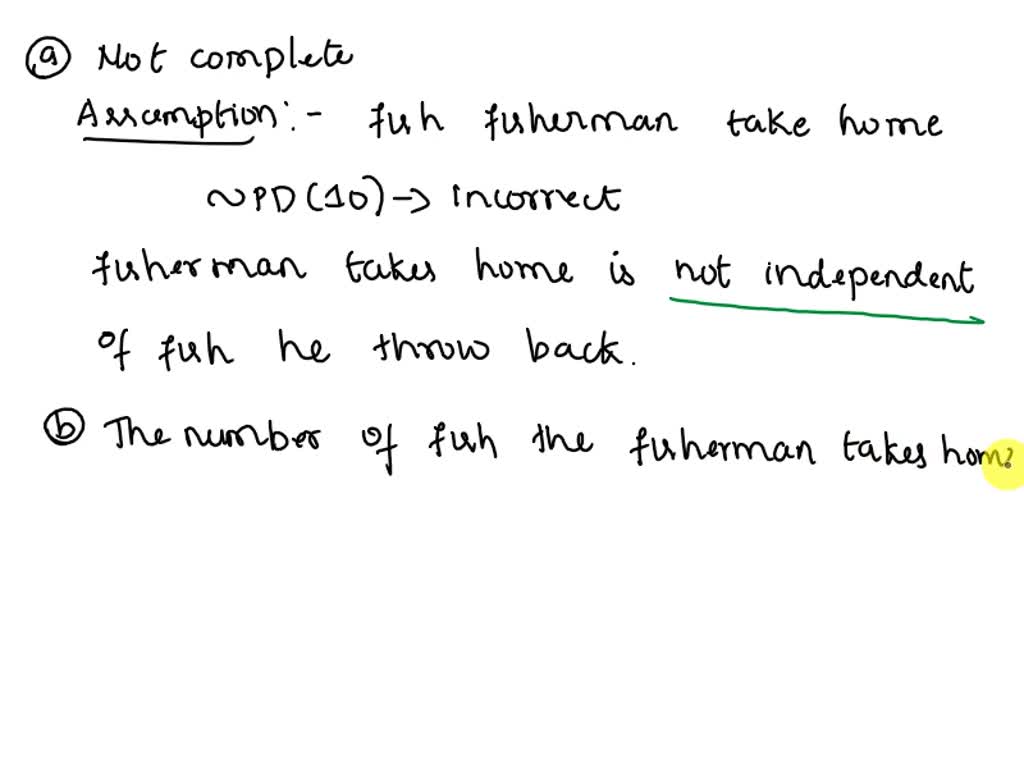 (a) Not complete
Assumption:- fish fisherman take home
~PD(10)→ incorrect
fisherman takes home is not independent
of fish he throw back.
(b) The number of fish the fisherman takes hom